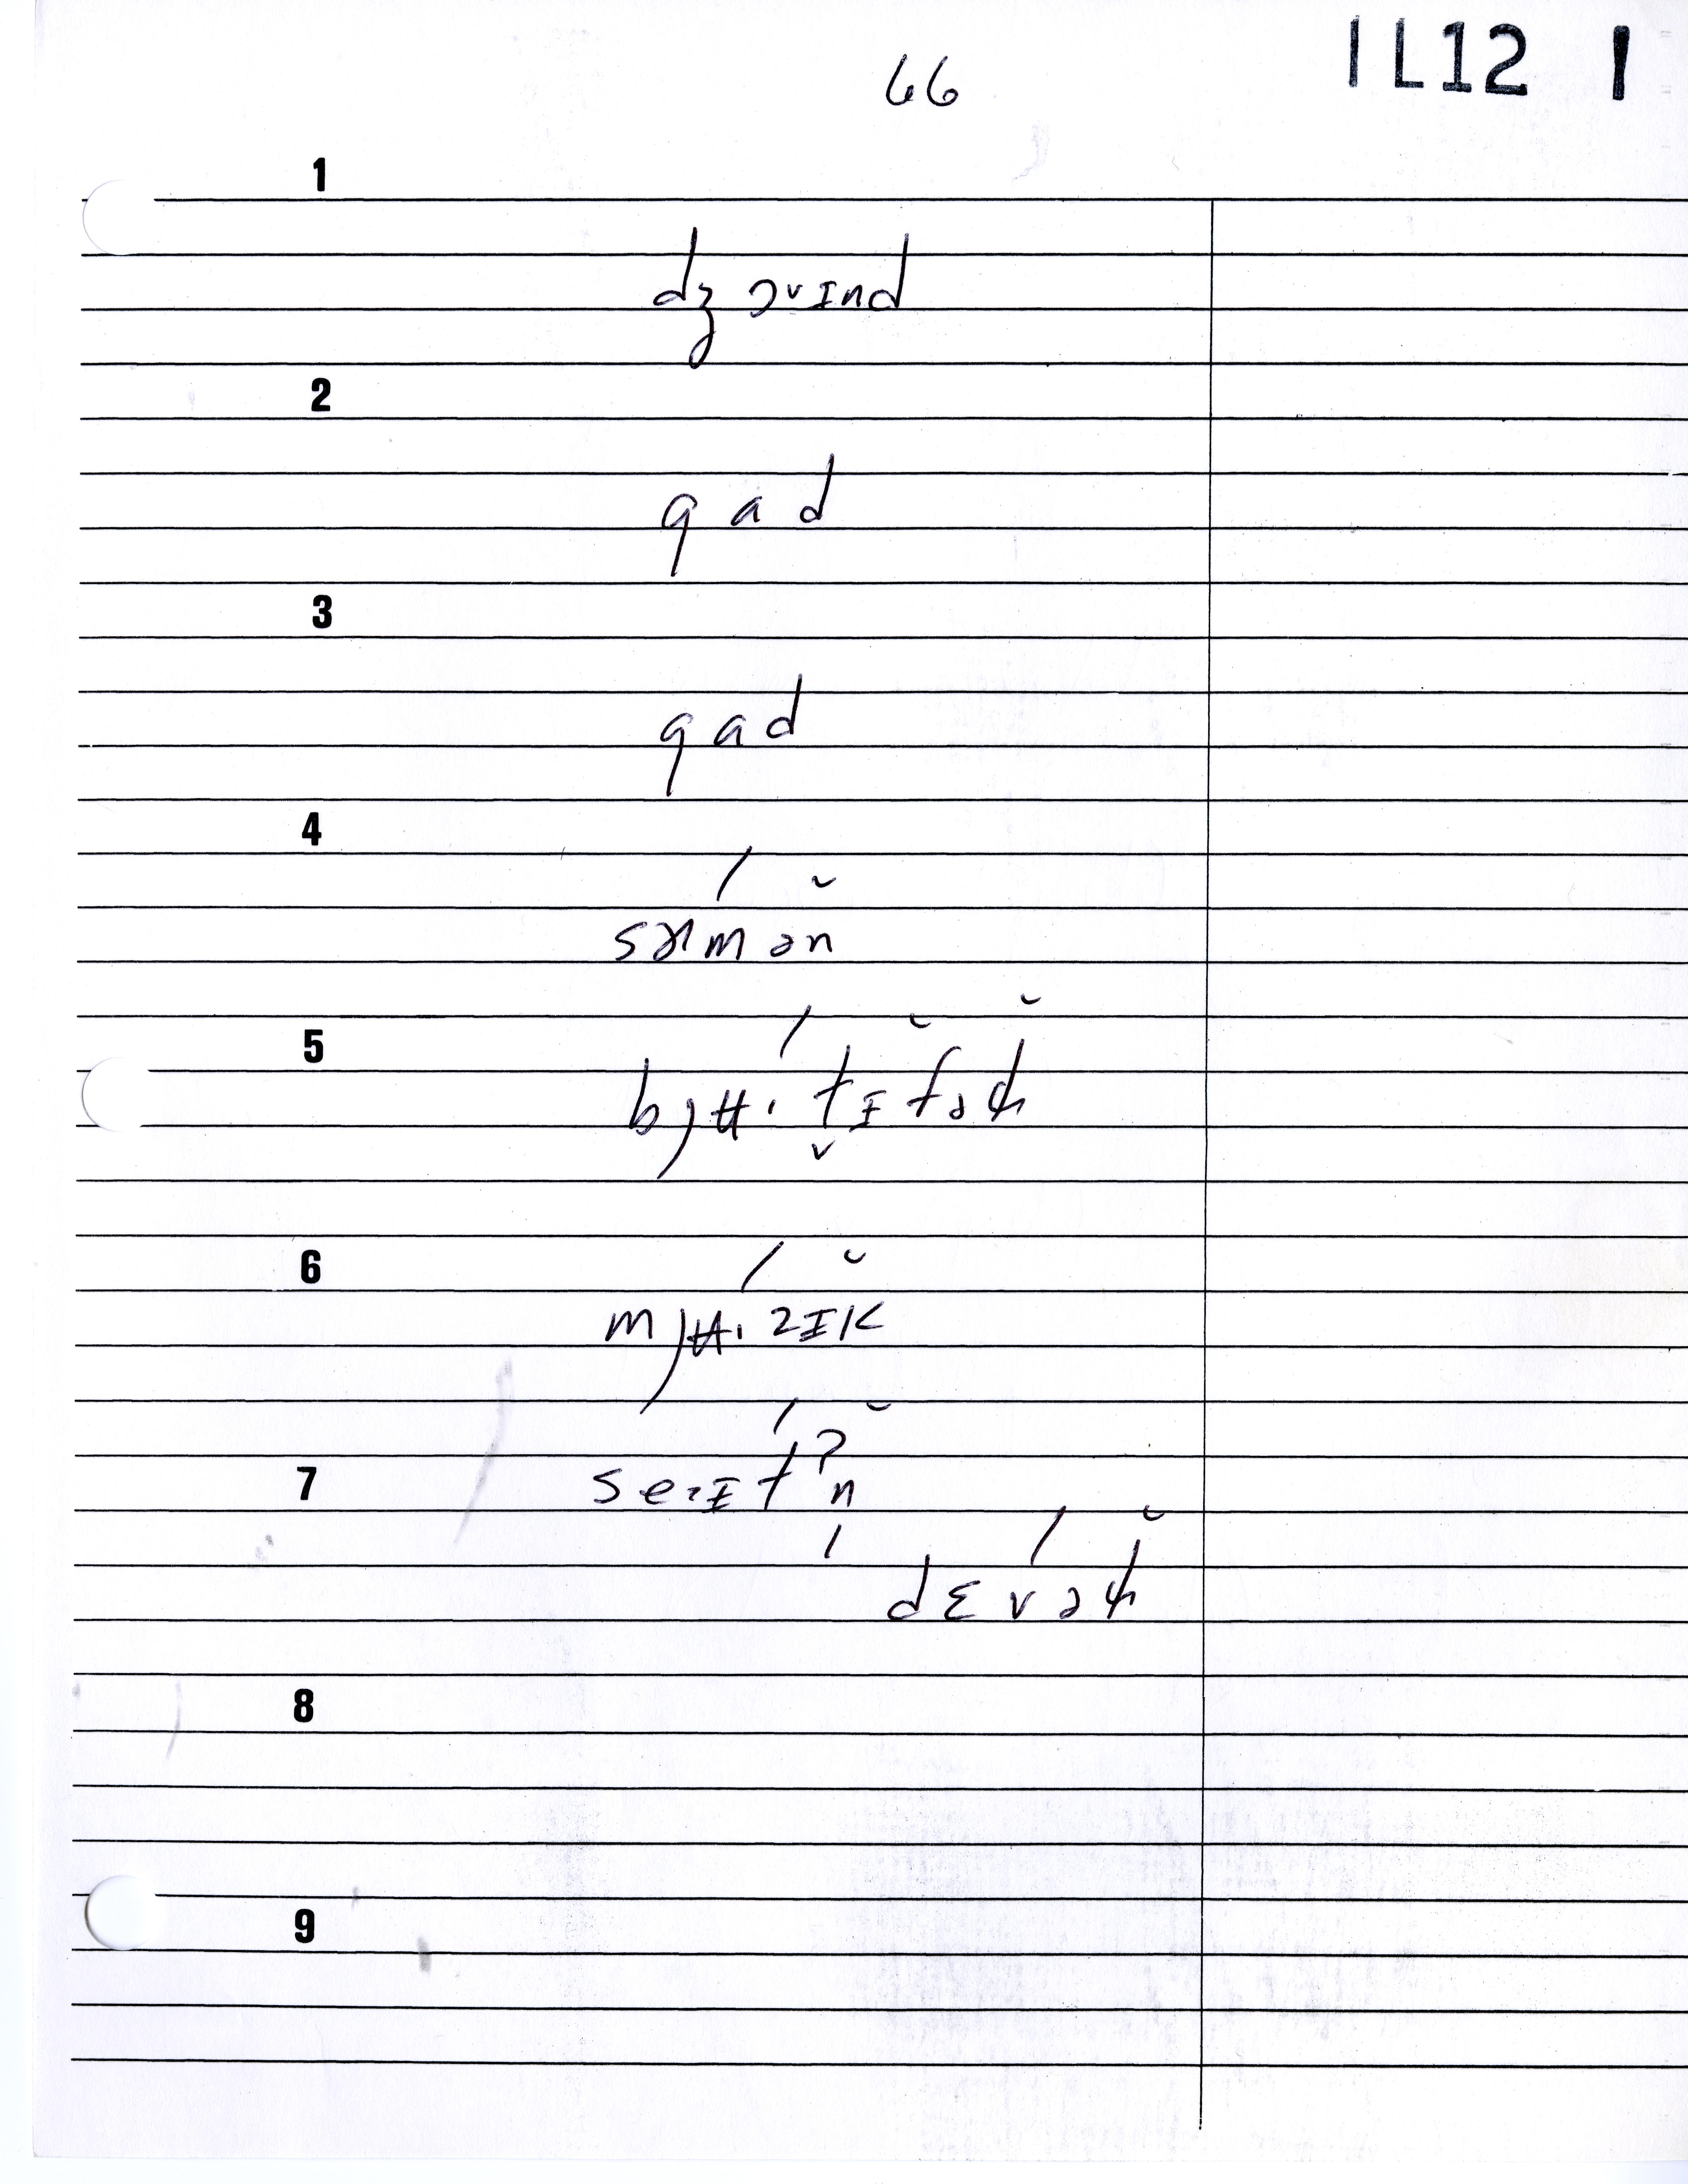 66
1L12 1
1
dʒɔvɪnd
2
gad
3
gad
4
sɑmən
5
bjʉ·t̬ɪfəɫ
6
mjʉ·zɪk
7
seɪtʔn̩
dɛvəɫ
8
9